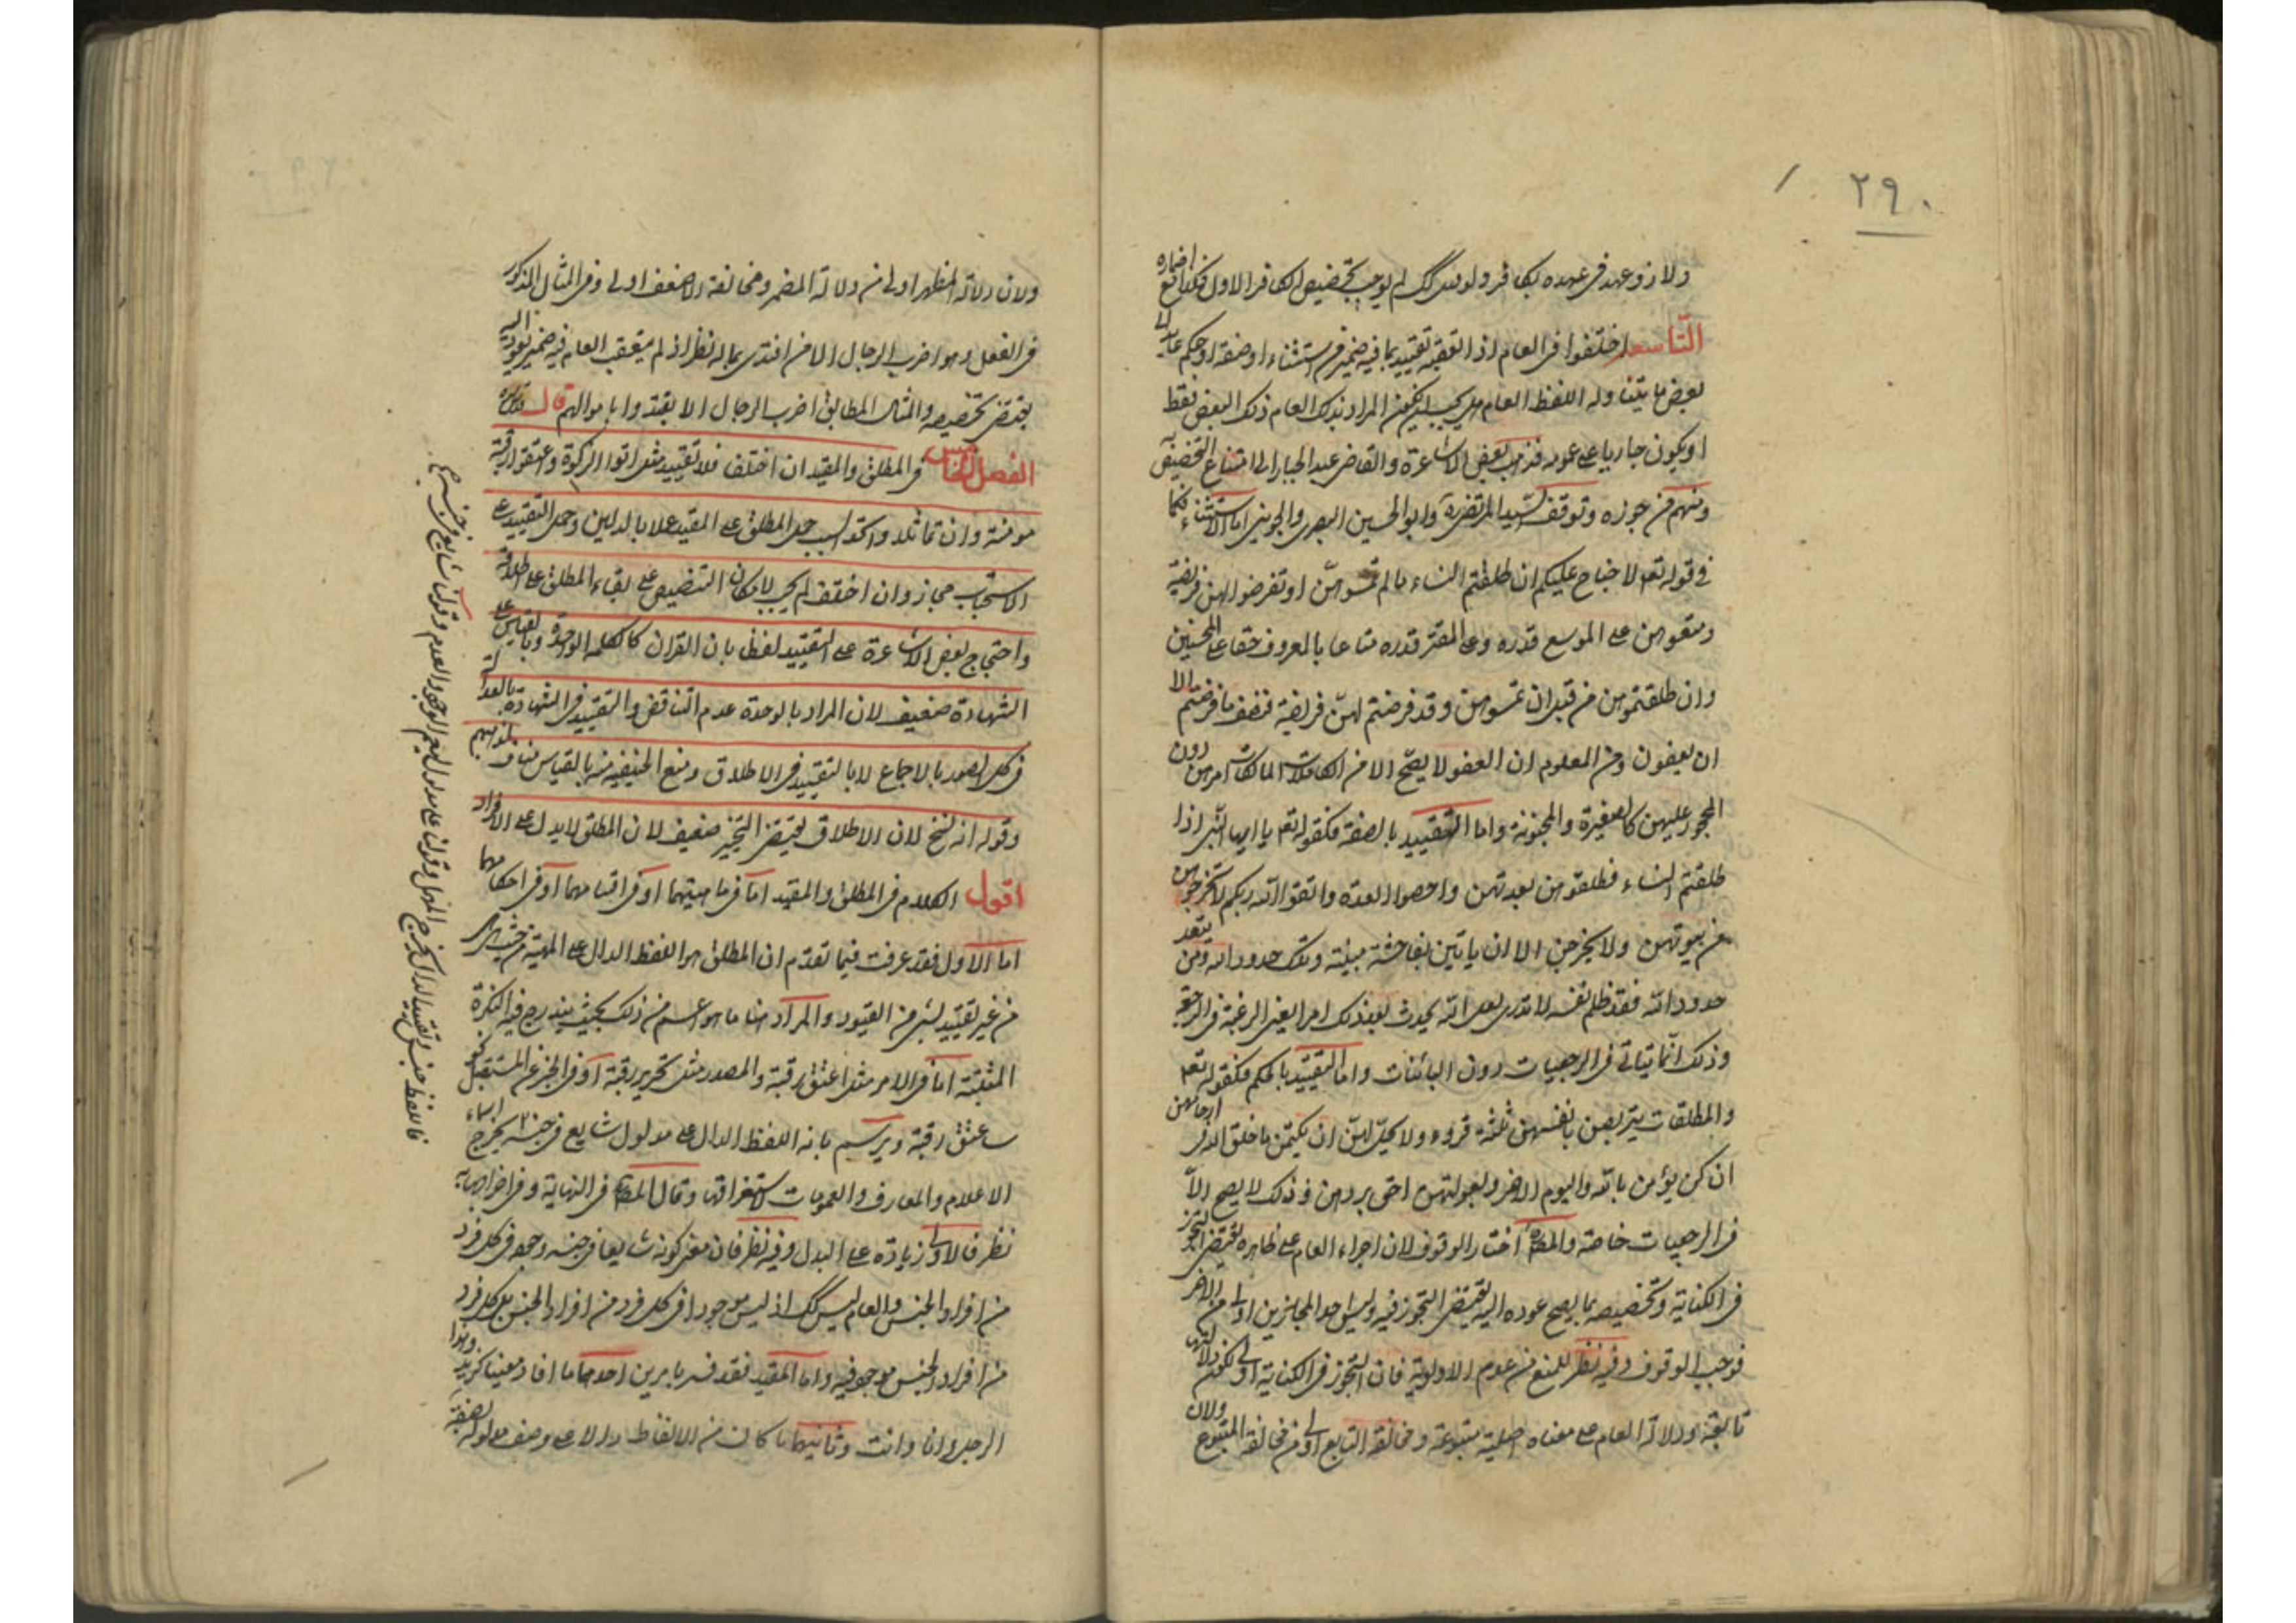 ٢٩٠
ولا ذو عهد في عهده بكافر ولو كان كك لم يوجب تخصيص الكافر الاول فكذا مع اضماره
التاسعة اختلفوا في العام اذا تعقبه تقييد بما فيه ضمير من استثناء او صفة او حكم عايد الى
بعض ما يتناوله اللفظ العام هل يجب ان يكون المراد بذلك العام ذلك البعض فقط
او يكون جاريا على عمومه فذهب بعض الاشاعرة والقاضي عبد الجبار الى امتناع التخصيص به
ومنهم من جوزه وتوقف السيد المرتضى ره وابو الحسين البصرى والجويني اما الاستثناء فكما
في قوله تعم لا جناح عليكم ان طلقتم النساء ما لم تمسوهن او تفرضوا لهن فريضة
ومتعوهن على الموسع قدره وعلى المقتر قدره متاعا بالمعروف حقا على المحسنين
وان طلقتموهن من قبل ان تمسوهن وقد فرضتم لهن فريضة فنصف ما فرضتم الا
ان يعفون ومن المعلوم ان العفو لا يصح الا من الكاملات المالكات امرهن دون
المحجور عليهن كالصغيرة والمجنونة واما التقييد بالصفة فكقوله تعم يا ايها النبي اذا
طلقتم النساء فطلقوهن لعدتهن واحصوا العدة واتقوا الله ربكم لا تخرجوهن
من بيوتهن ولا يخرجن الا ان ياتين بفاحشة مبينة وتلك حدود الله ومن يتعد
حدود الله فقد ظلم نفسه لا تدرى لعل الله يحدث بعد ذلك امرا يعنى الرغبة في الرجعة
وذلك انما يتاتى في الرجعيات دون البائنات واما التقييد بالحكم فكقوله تعم
والمطلقات يتربصن بانفسهن ثلثة قروء ولا يحل لهن ان يكتمن ما خلق الله في ارحامهن
ان كن يؤمن بالله واليوم الاخر وبعولتهن احق بردهن في ذلك لا يصح الا
في الرجعيات خاصة والمص ره اختار الوقوف لان اجراء العام على ظاهره يقتضي التجوز
في الكناية وتخصيصه بما يصح عوده اليه يقتضي التجوز فيه وليس احد المجازين اولى من الاخر
فوجب الوقوف وفيه نظر للمنع من عدم الاولوية فان التجوز في الكناية اولى لكون دلالتها
تابعة ودلالة العام على معناه اصلية متبوعة ومخالفة التابع اولى من مخالفة المتبوع ولان
ولان دلالة المظهر اولى من دلالة المضمر ومخالفة الاضعف اولى وفي المثال المذكور
في الفعل وهو اضرب الرجال الا من افتدى بماله نظر اذ لم يتعقب العام فيه ضمير يعود اليه
يقتضي تخصيصه والمثال المطابق اضرب الرجال الا يفتدوا باموالهم قال قدس سره
الفصل الخامس في المطلق والمقيد ان اختلف فلا تقييد مثل اتوا الزكوة واعتقوا رقبة
مومنة وان تماثلا واتحد السبب حمل المطلق على المقيد عملا بالدليلين وحمل التقييد على
الاستحباب مجاز وان اختلف لم يجب لامكان التنصيص على بقاء المطلق على اطلاقه
واحتجاج بعض الاشاعرة على التقييد لفظا بان القران كالكلمة الواحدة وبالقياس على
الشهادة ضعيف لان المراد بالوحدة عدم التناقض والتقييد في الشهادة بالعدالة
في كل الصور بالاجماع لا بالتقييد في الاطلاق ومنع الحنفية منه بالقياس مناف لمذاهبهم
وقوله انه نسخ لان الاطلاق يقتضي التخيير ضعيف لان المطلق لا يدل على الافراد
اقول الكلام في المطلق والمقيد اما في ماهيتهما او في اقسامهما او في احكامهما
اما الاول فقد عرفت فيما تقدم ان المطلق هو اللفظ الدال على المهية من حيث هي هي
من غير تقييد بشئ من القيود والمراد هنا ما هو اعم من ذلك بحيث يندرج فيه النكرة
المثبتة اما في الامر مثل اعتق رقبة والمصدر مثل تحرير رقبة او في الخبر عن المستقبل نحو
ساعتق رقبة ويرسم بانه اللفظ الدال على مدلول شايع في جنسه يخرج اسماء
الاعلام والمعارف والعمومات لاستغراقها وقال المص في النهاية وفي اخراجها به
نظر فالاولى زيادة على البدل وفيه نظر فان معنى كونه شايعا في جنسه وجوده في كل فرد
من افراد الجنس والعام ليس كك اذ ليس موجودا في كل فرد من افراد الجنس بل كل فرد
من افراد الجنس موجود فيه واما المقيد فقد فسر بامرين احدهما ما افاد معينا كزيد وهذا
الرجل وانا وانت وثانيهما ما كان من الالفاظ دالا على وصف مدلوله بصفة
فاللفظ جنس وتقييد الدال يخرج المهمل وقولنا على مدلول ليعم الوجود والعدم وقولنا شايع في جنسه